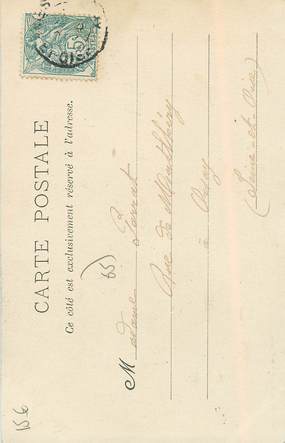 CARTE POSTALE
Ce côté est exclusivement réservé à l'adresse.
Madame
Rue de Montlhéry
à Orsay
(Seine-et-Oise)
65)